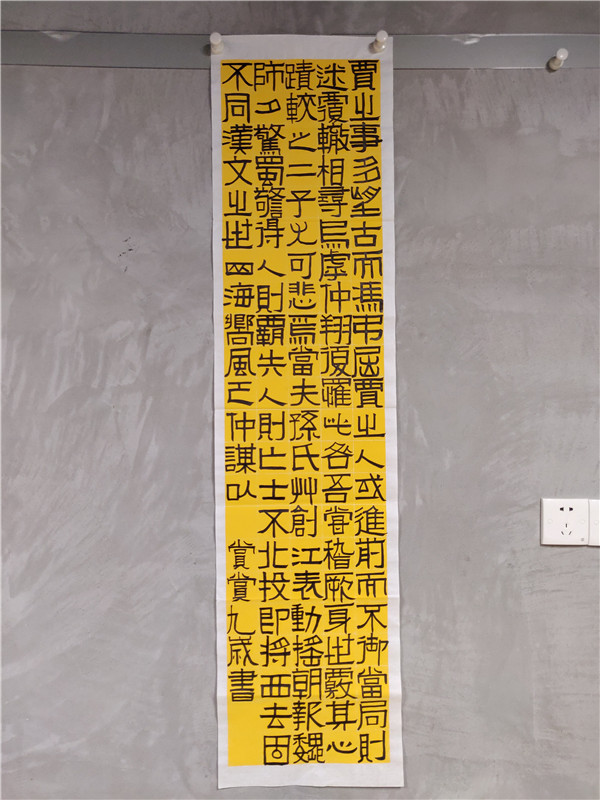 賈之事多望古而馮弔屈賈之人或進前而不御當局則
迷覆轍相尋烏虖仲翔復罹此咎吾嘗稽厥身世覈其心
蹟較之二子尤可悲焉當夫孫氏艸創江表動搖朝報魏
師夕驚蜀警得人則霸失人則亡士不北投即將西去固
不同漢文之世四海嚮風已仲謀以
賞賞九歲書